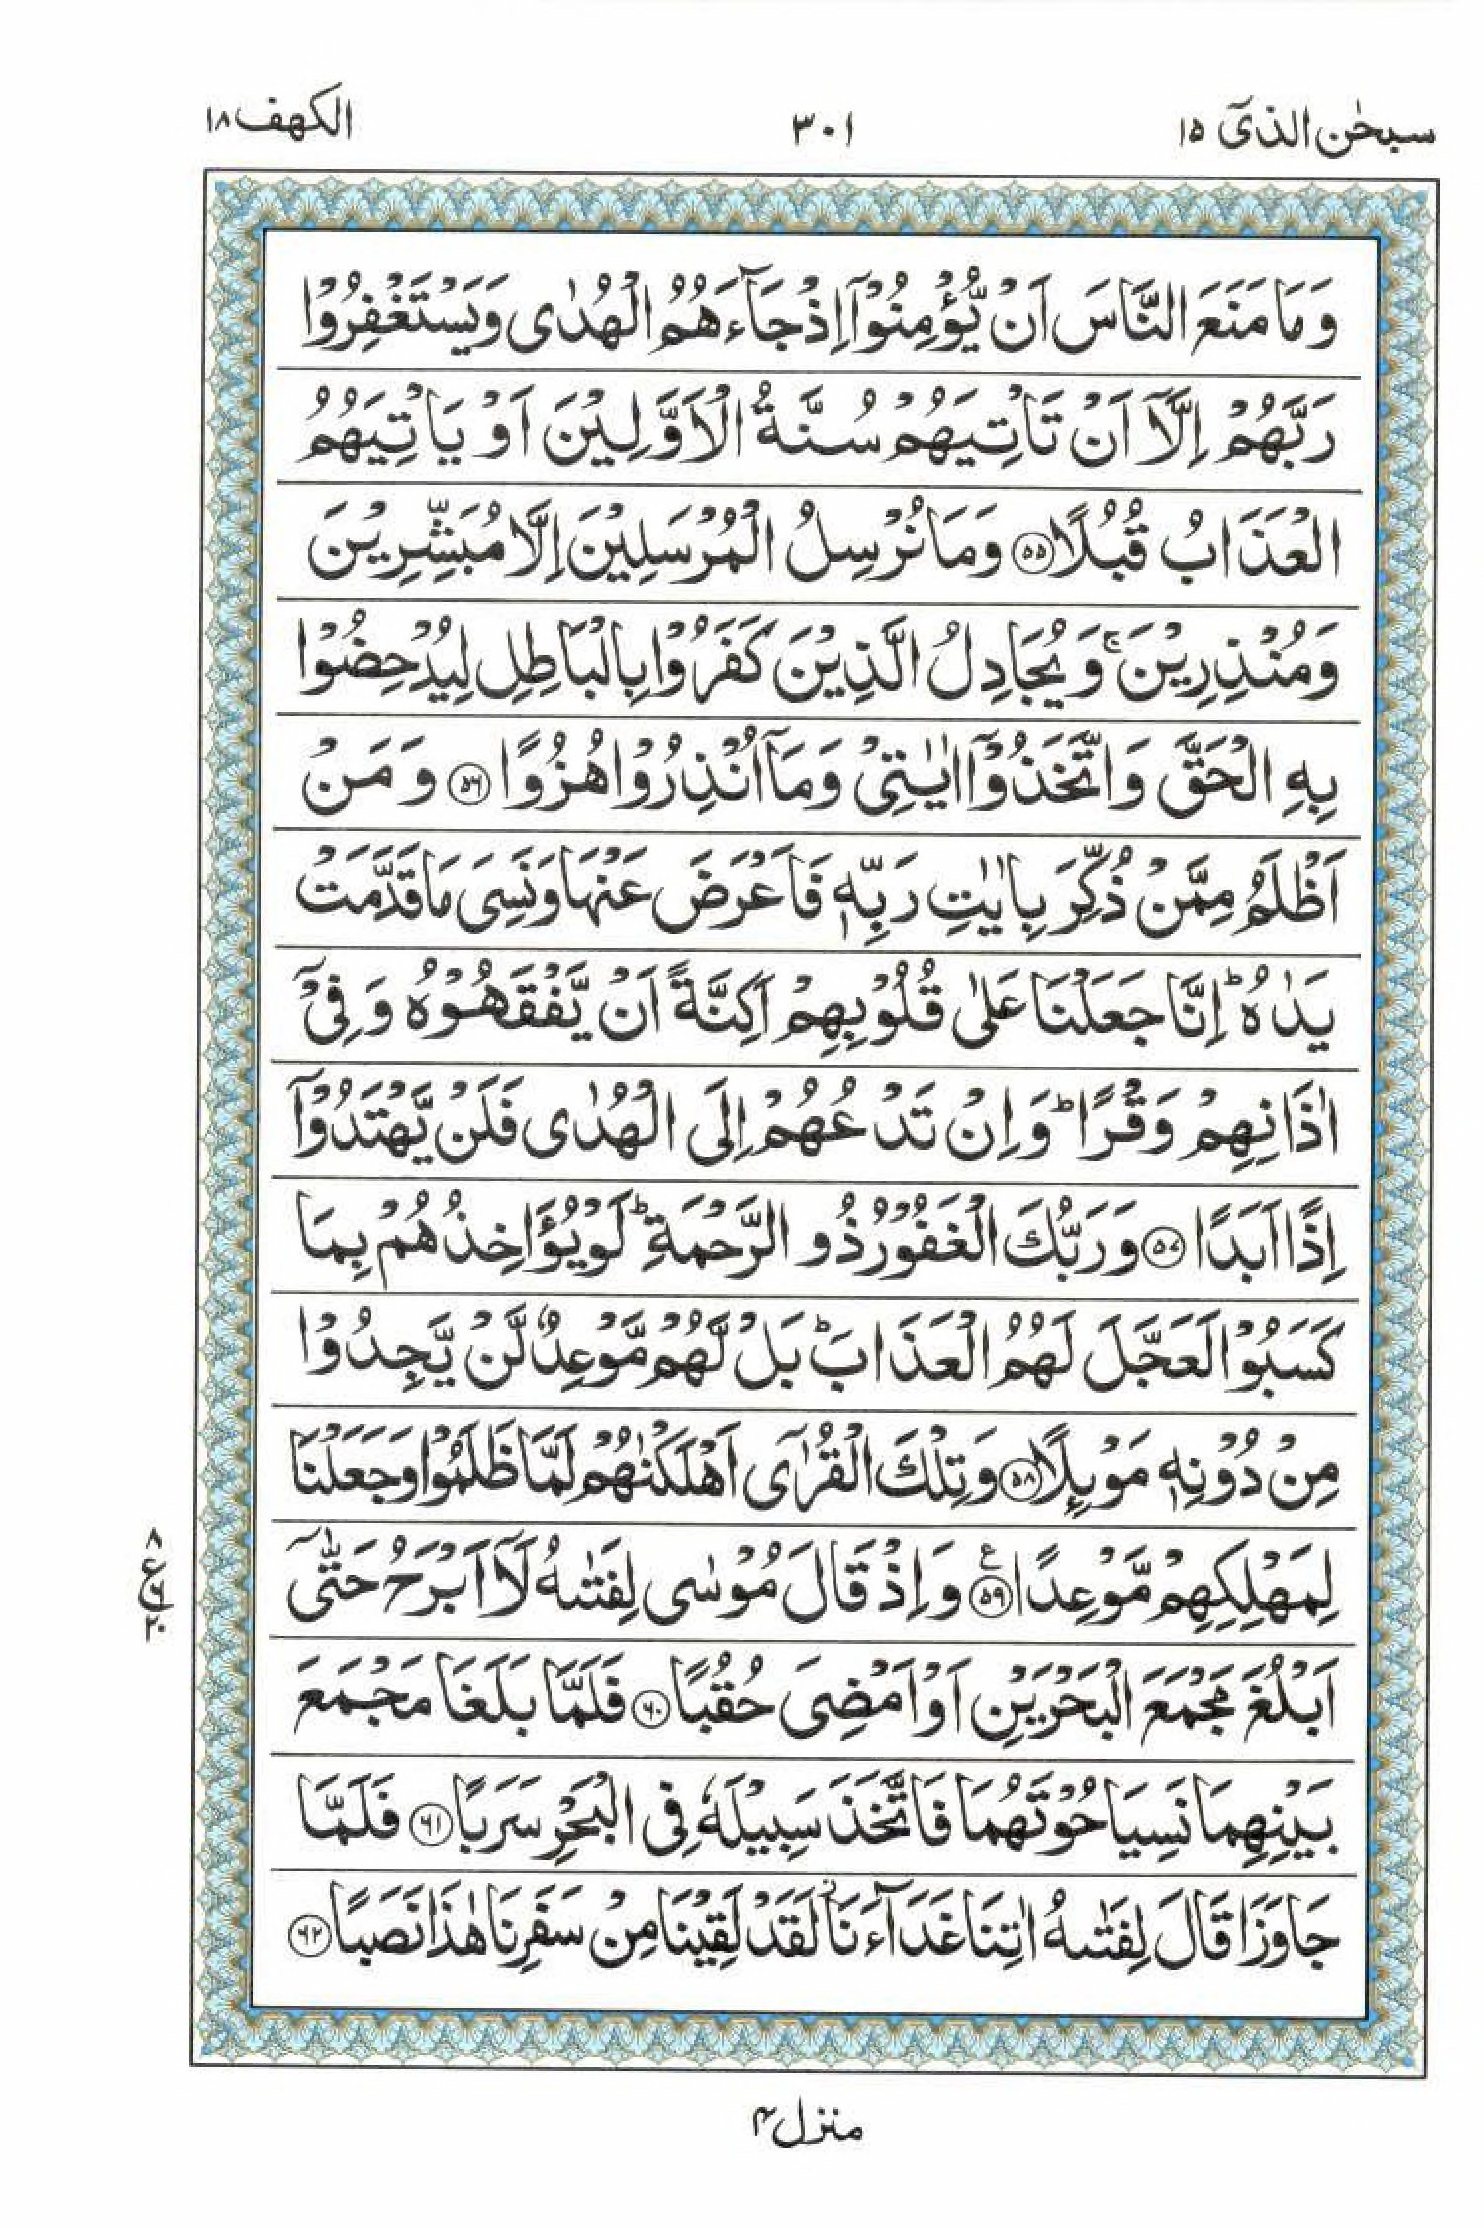 سبحٰن الذیٓ ۱۵
۳۰۱
الکھف ۱۸
وَمَا مَنَعَ النَّاسَ اَنْ یُّؤْمِنُوْۤا اِذْ جَآءَهُمُ الْهُدٰی وَیَسْتَغْفِرُوْا
رَبَّهُمْ اِلَّاۤ اَنْ تَاْتِیَهُمْ سُنَّةُ الْاَوَّلِیْنَ اَوْ یَاْتِیَهُمُ
الْعَذَابُ قُبُلًا ۵۵ وَمَا نُرْسِلُ الْمُرْسَلِیْنَ اِلَّا مُبَشِّرِیْنَ
وَمُنْذِرِیْنَ ۚ وَیُجَادِلُ الَّذِیْنَ كَفَرُوْا بِالْبَاطِلِ لِیُدْحِضُوْا
بِهِ الْحَقَّ وَاتَّخَذُوْۤا اٰیٰتِیْ وَمَاۤ اُنْذِرُوْا هُزُوًا ۵۶ وَمَنْ
اَظْلَمُ مِمَّنْ ذُكِّرَ بِاٰیٰتِ رَبِّهٖ فَاَعْرَضَ عَنْهَا وَنَسِیَ مَا قَدَّمَتْ
یَدٰهُ ؕ اِنَّا جَعَلْنَا عَلٰی قُلُوْبِهِمْ اَكِنَّةً اَنْ یَّفْقَهُوْهُ وَفِیْۤ
اٰذَانِهِمْ وَقْرًا ؕ وَاِنْ تَدْعُهُمْ اِلَی الْهُدٰی فَلَنْ یَّهْتَدُوْۤا
اِذًا اَبَدًا ۵۷ وَرَبُّكَ الْغَفُوْرُ ذُو الرَّحْمَةِ ؕ لَوْ یُؤَاخِذُهُمْ بِمَا
كَسَبُوْا لَعَجَّلَ لَهُمُ الْعَذَابَ ؕ بَلْ لَّهُمْ مَّوْعِدٌ لَّنْ یَّجِدُوْا
مِنْ دُوْنِهٖ مَوْىِٕلًا ۵۸ وَتِلْكَ الْقُرٰۤی اَهْلَكْنٰهُمْ لَمَّا ظَلَمُوْا وَجَعَلْنَا
لِمَهْلِكِهِمْ مَّوْعِدًا ۵۹ ع وَاِذْ قَالَ مُوْسٰی لِفَتٰىهُ لَاۤ اَبْرَحُ حَتّٰۤی
اَبْلُغَ مَجْمَعَ الْبَحْرَیْنِ اَوْ اَمْضِیَ حُقُبًا ۶۰ فَلَمَّا بَلَغَا مَجْمَعَ
بَیْنِهِمَا نَسِیَا حُوْتَهُمَا فَاتَّخَذَ سَبِیْلَهٗ فِی الْبَحْرِ سَرَبًا ۶۱ فَلَمَّا
جَاوَزَا قَالَ لِفَتٰىهُ اٰتِنَا غَدَآءَنَا ؗ لَقَدْ لَقِیْنَا مِنْ سَفَرِنَا هٰذَا نَصَبًا ۶۲
۸
ع
۲۰
منزل ۴